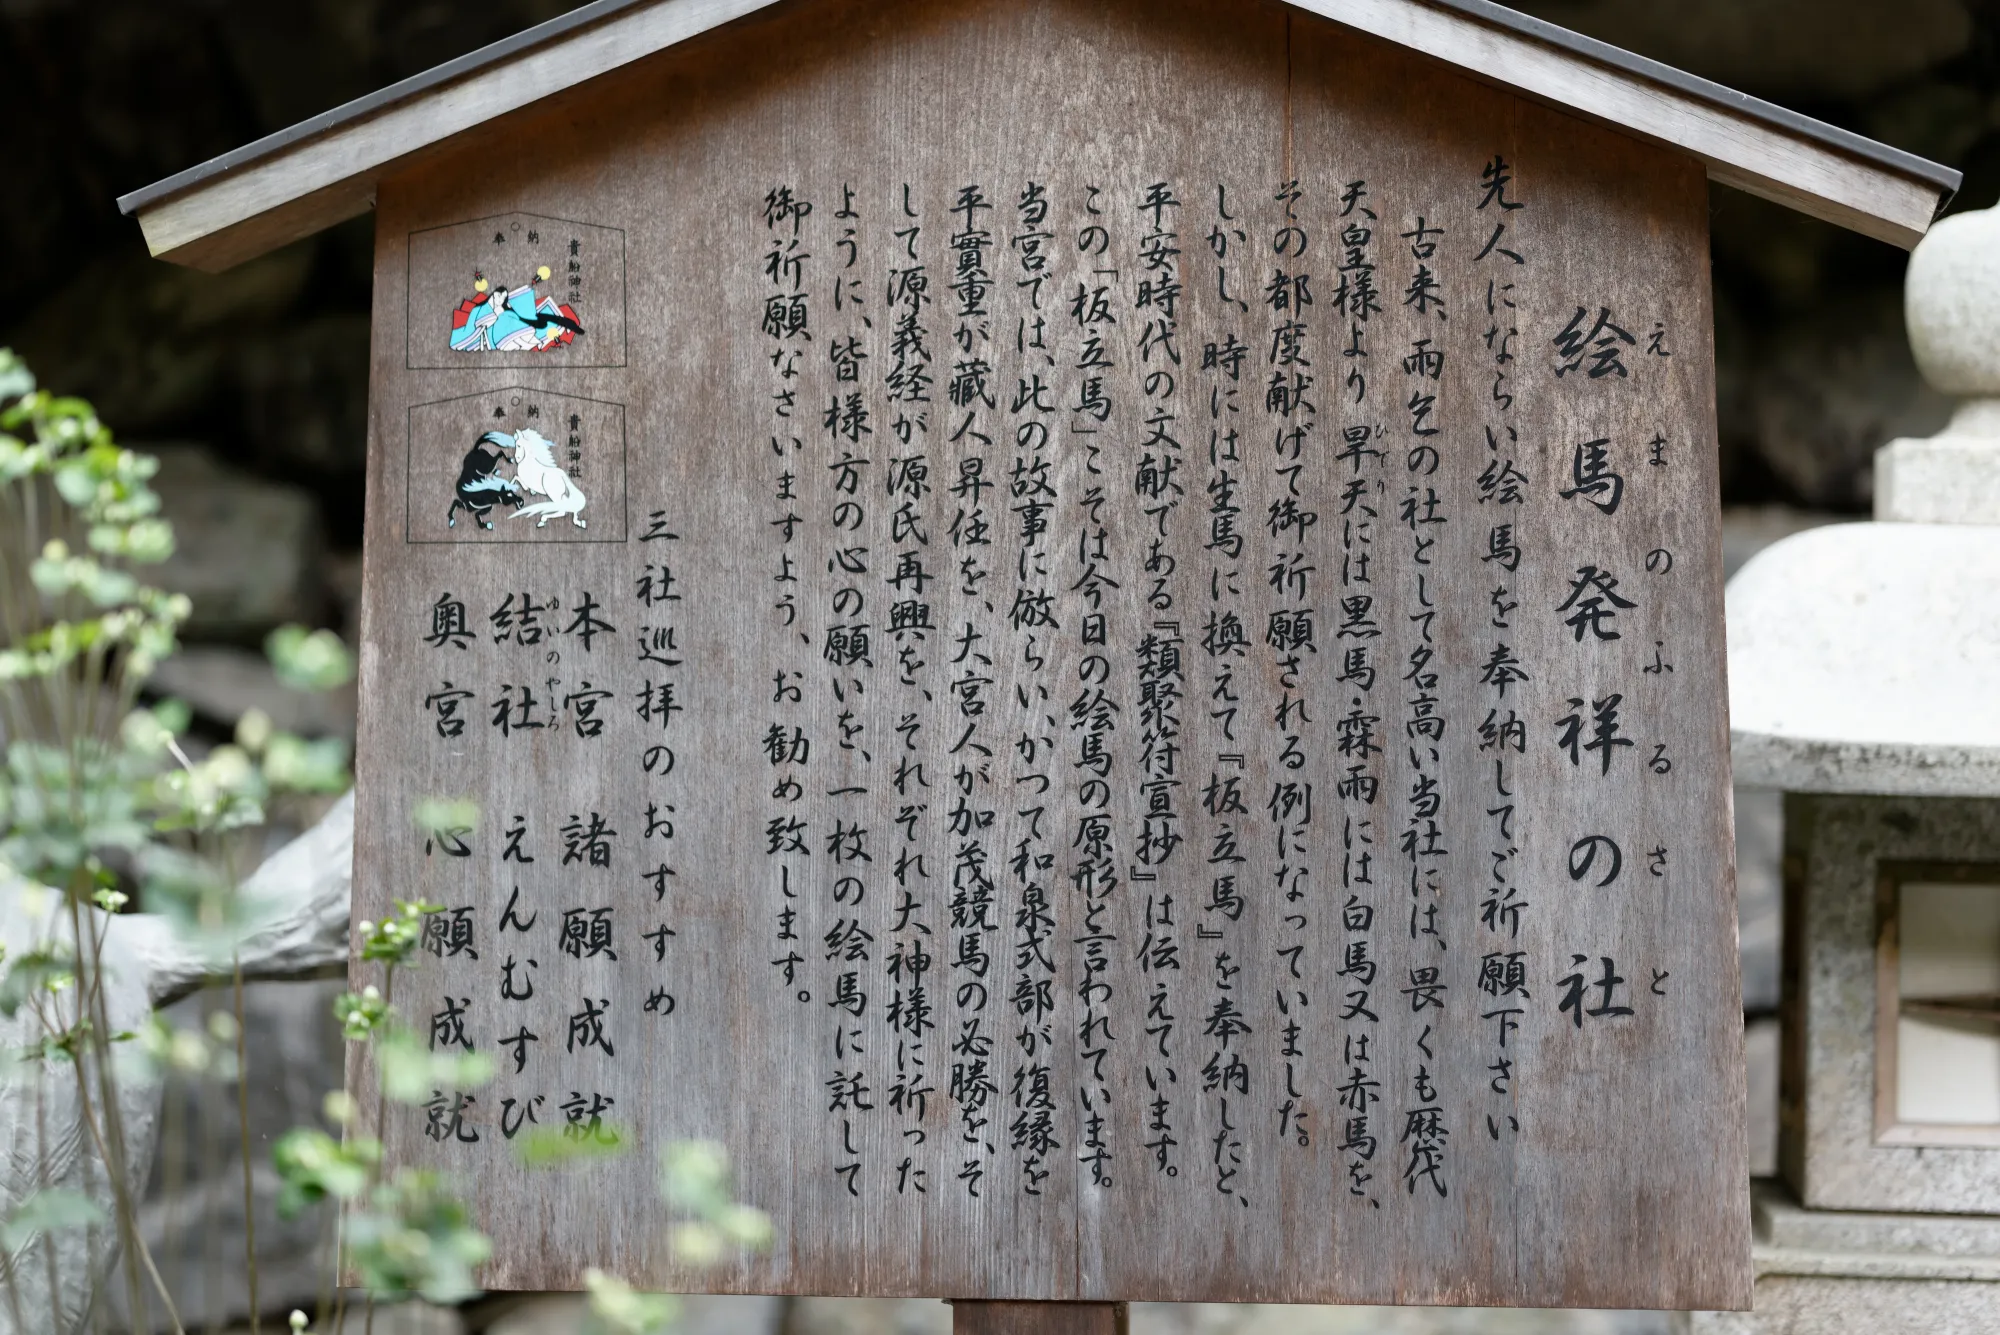 えまのふるさと
絵馬発祥の社
先人にならい絵馬を奉納してご祈願下さい
古来、雨乞の社として名高い当社には、畏くも歴代
天皇様より旱天には黒馬・霖雨には白馬又は赤馬を、
ひでり
その都度献げて御祈願される例になっていました。
しかし、時には生馬に換えて『板立馬』を奉納したと、
平安時代の文献である『類聚符宣抄』は伝えています。
この「板立馬」こそは今日の絵馬の原形と言われています。
当宮では、此の故事に倣らい、かつて和泉式部が復縁を
平實重が蔵人昇任を、大宮人が加茂競馬の必勝を、そ
して源義経が源氏再興を、それぞれ大神様に祈った
ように、皆様方の心の願いを、一枚の絵馬に託して
御祈願なさいますよう、お勧め致します。
三社巡拝のおすすめ
本宮 諸願成就
ゆいのやしろ
結社 えんむすび
奥宮 心願成就
貴船神社
奉納
貴船神社
奉納